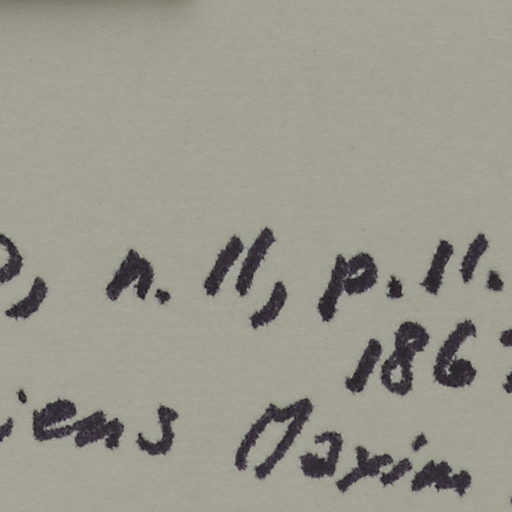 , n. 11, p. 11.
186
iens Maxim